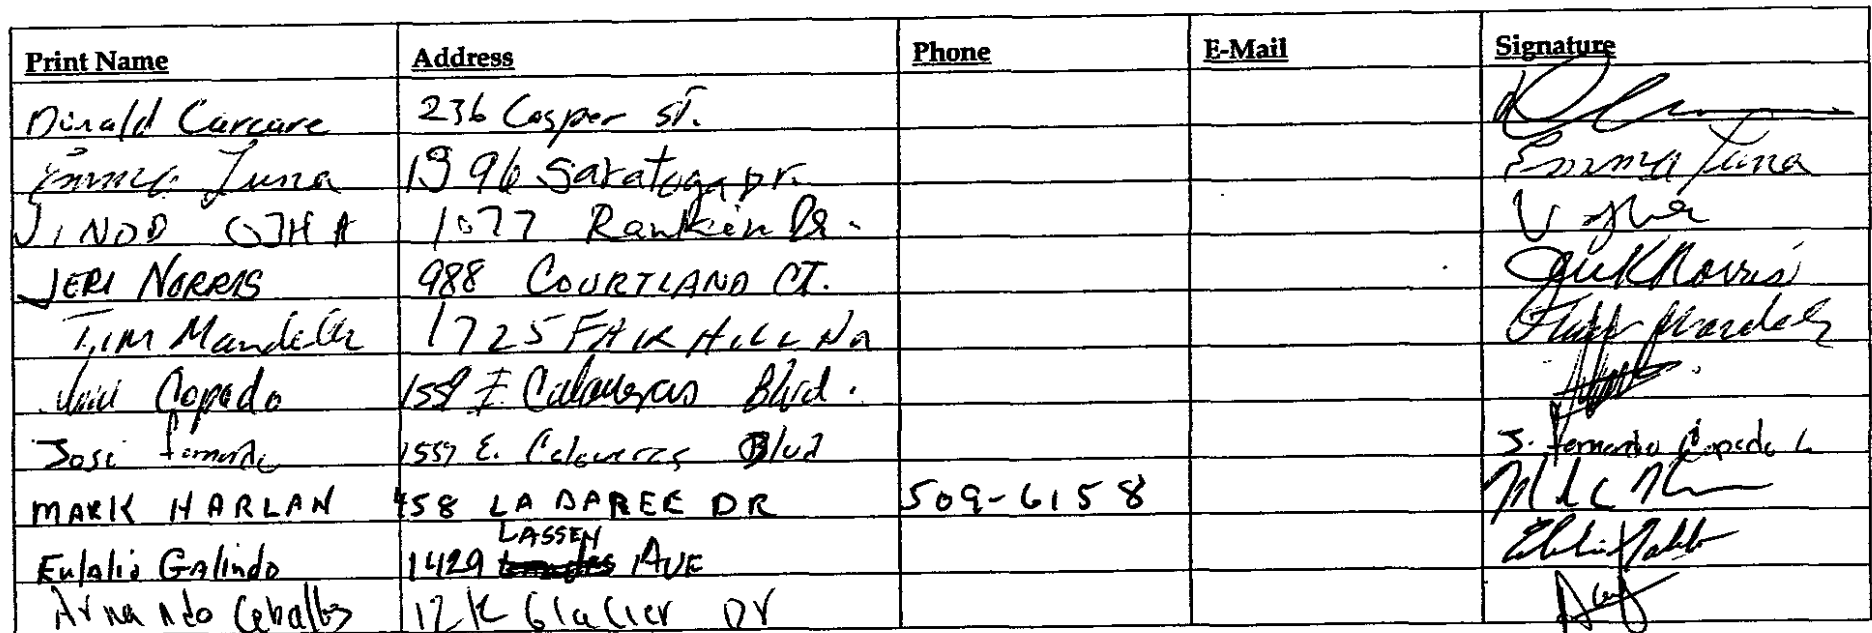 Print Name Address Phone E-Mail Signature
Donald 236 Casper ST.
Emma Luna 1396 Saratoga Dr. Emma Luna
VINOD OJHA 1077 Rankin Dr.
JERI NORRIS 988 COURTLAND CT. Norris
TIM 1725 FAIR HILL
Copado 1559 E Calaveras Blvd.
Jose Fernando 1559 E. Calaveras Blvd J. Fernando Copado L
MARK HARLAN 458 LA BAREE DR 509-6158
LASSEN
Eulalio GAlindo 1429 AVE
Ceballos Glacier Dr